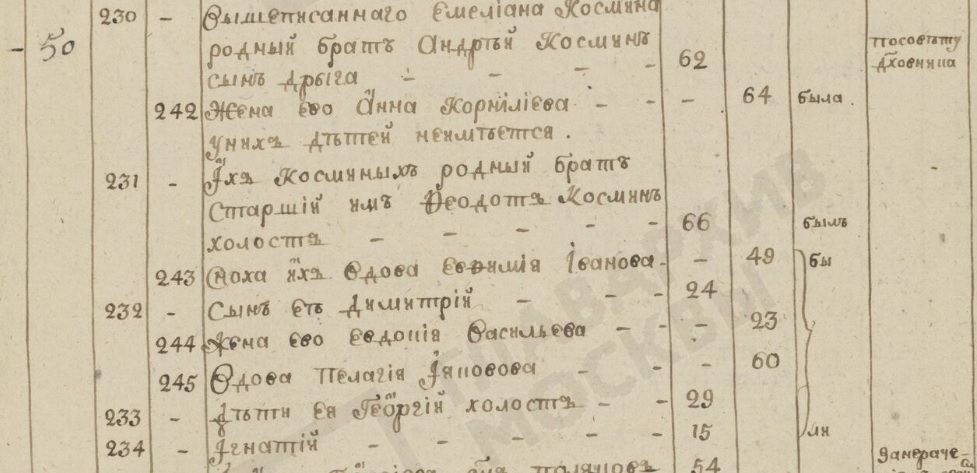 230 – Вышеписаннаго Емеліана Космина
– 50 родный братъ Андрѣй Косминъ посовѣту
сынъ Дрыга – – – – 62 дховника
242 Жена ево Анна Корнілієва – – – 64 была
унихъ дѣтей неимѣется.
231 – Ихъ Косминыхъ родный братъ –
старшій имъ Ѳеодотъ Косминъ
холостъ – – – – – 66 былъ
243 Сноха ихъ вдова Евѳимія Іванова – – 49 бы
232 – Сынъ еѣ Димитрій – – – 24
244 Жена ево Евдокія Васильева – – – 23
245 Вдова Пелагія Іяковова – – – 60
233 – Дѣти ея Геѡргій холостъ – – 29
234 – Ігнатій – – – – – 15 ли
54
ГЛАВАРХИВ
МОСКВЫ